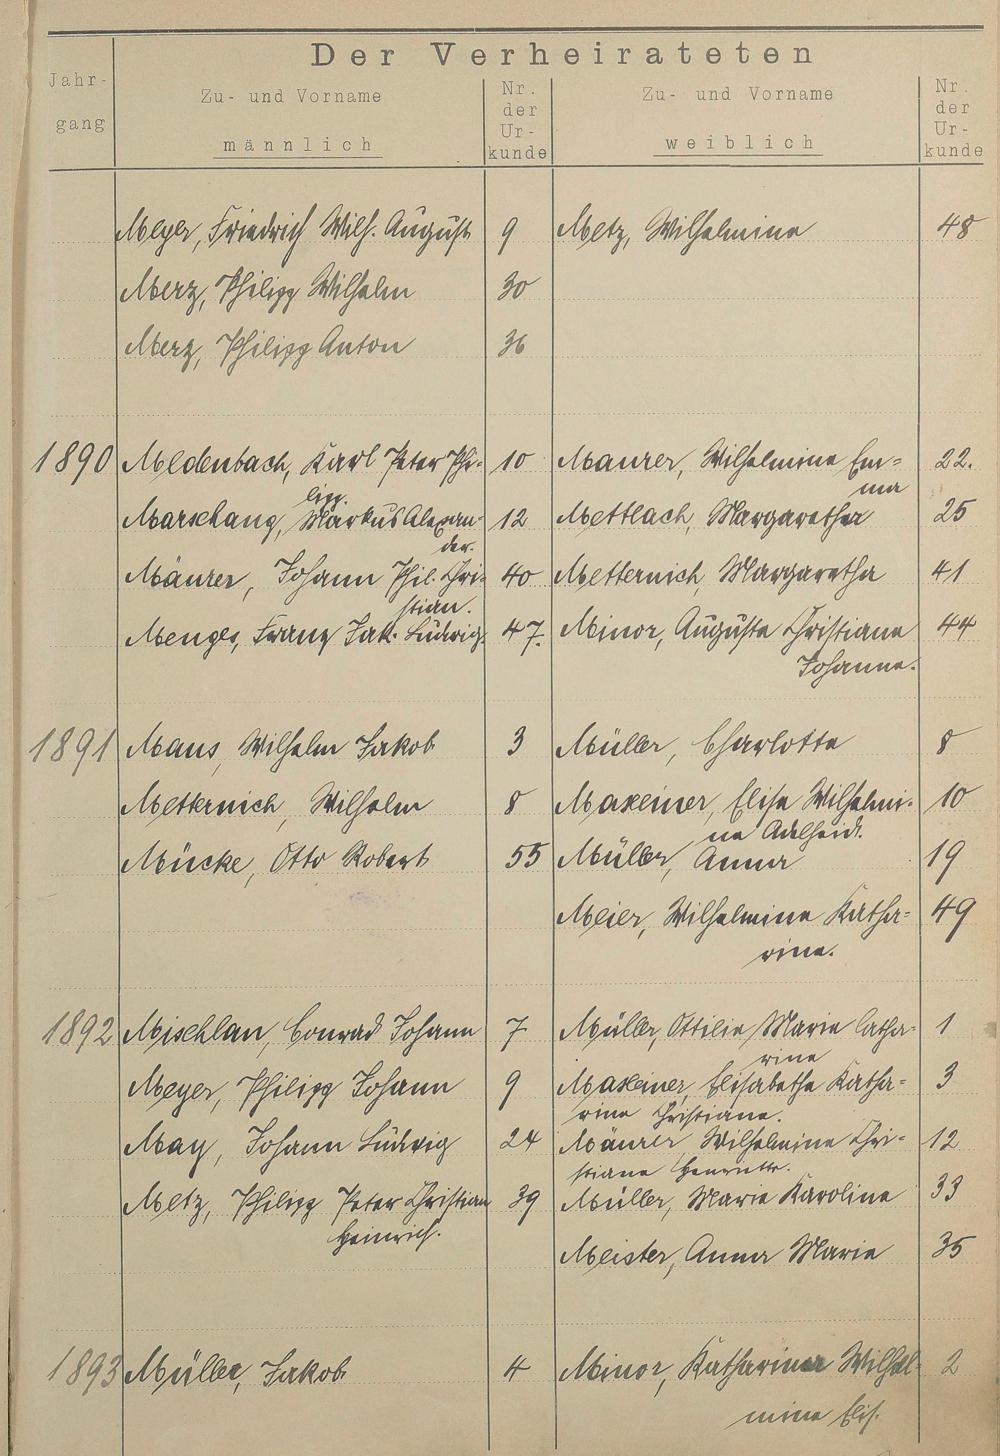 Der Verheirateten
Jahr-
gang
Zu- und Vorname
männlich
Nr.
der
Ur-
kunde
Zu- und Vorname
weiblich
Nr.
der
Ur-
kunde
Meyer, Friedrich Wilh. August 9 Metz, Wilhelmine 48
Merz, Philipp Wilhelm 30
Merz, Philipp Anton 36
1890 Medenbach, Karl Peter Phi- 10 Maurer, Wilhelmine Em= 22.
lipp. ma
Marschang, Markus Alexan- 12 Mettlach, Margaretha 25
der.
Mäurer, Johann Phil. Chri- 40 Metternich, Margaretha 41
stian.
Menges, Franz Jak. Ludwig. 47. Minor, Auguste Christiane 44
Johanna.
1891 Maus, Wilhelm Jakob 3 Müller, Charlotte 8
Metternich, Wilhelm 8 Maxeiner, Elise Wilhelmi- 10
ne Adelheid.
Mücke, Otto Robert 55 Müller, Anna 19
Meier, Wilhelmine Katha= 49
rine.
1892 Mischlau, Conrad Johann 7 Müller, Ottilie Marie Catha- 1
rine
Meyer, Philipp Johann 9 Maxeiner, Elisabethe Katha= 3
rine Christiane.
May, Johann Ludwig 24 Mäurer Wilhelmine Chri= 12
stiane Henriette.
Metz, Philipp Peter Christian 39 Müller, Marie Karoline 33
Heinrich.
Meister, Anna Marie 35
1893 Müller, Jakob 4 Minor, Katharina Wilhel- 2
mine Elis.